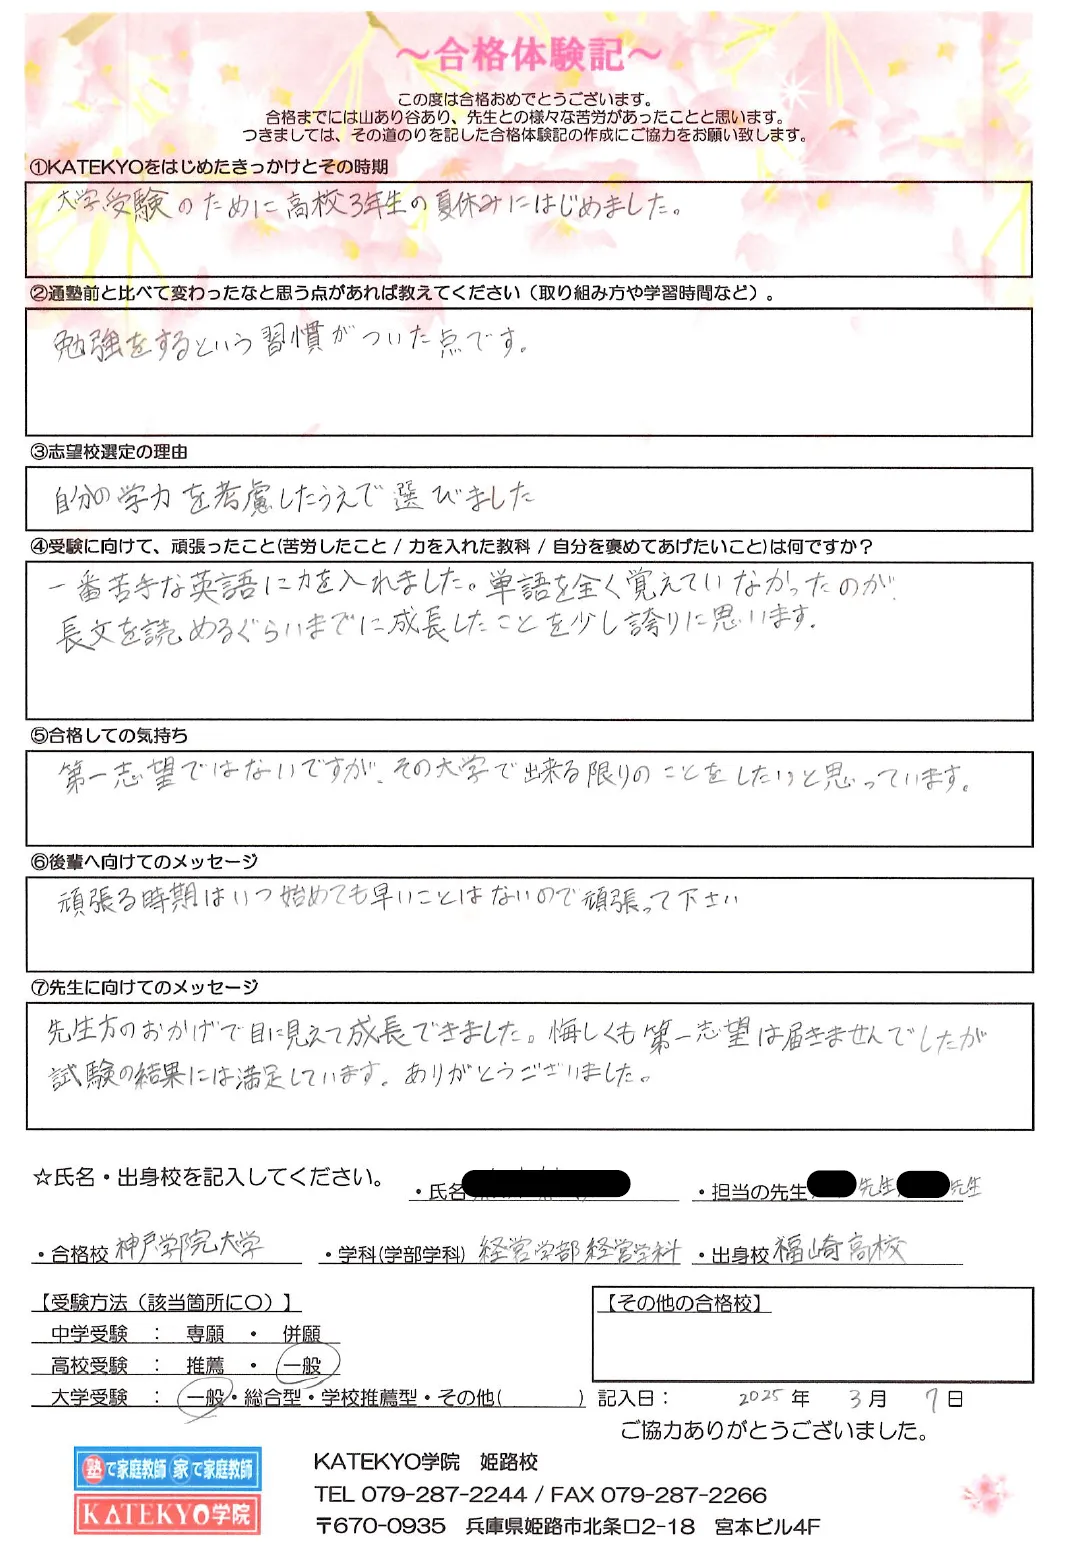 ～合格体験記～
この度は合格おめでとうございます。
合格までには山あり谷あり、先生との様々な苦労があったことと思います。
つきましては、その道のりを記した合格体験記の作成にご協力をお願い致します。
①KATEKYOをはじめたきっかけとその時期
大学受験のために高校3年生の夏休みにはじめました。
②通塾前と比べて変わったなと思う点があれば教えてください（取り組み方や学習時間など）。
勉強をするという習慣がついた点です。
③志望校選定の理由
自分の学力を考慮したうえで選びました
④受験に向けて、頑張ったこと(苦労したこと / 力を入れた教科 / 自分を褒めてあげたいこと)は何ですか？
一番苦手な英語に力を入れました。単語を全く覚えていなかったのが、
長文を読めるぐらいまでに成長したことを少し誇りに思います。
⑤合格しての気持ち
第一志望ではないですが、その大学で出来る限りのことをしたいと思っています。
⑥後輩へ向けてのメッセージ
頑張る時期はいつ始めても早いことはないので頑張って下さい
⑦先生に向けてのメッセージ
先生方のおかげで目に見えて成長できました。悔しくも第一志望は届きませんでしたが
試験の結果には満足しています。ありがとうございました。
☆氏名・出身校を記入してください。
・氏名 ・担当の先生 先生 先生
・合格校 神戸学院大学 ・学科(学部学科) 経営学部経営学科 ・出身校 福崎高校
【受験方法（該当箇所に〇）】 【その他の合格校】
中学受験 ： 専願 ・ 併願
高校受験 ： 推薦 ・ 一般
大学受験 ： 一般・総合型・学校推薦型・その他( ) 記入日： 2025 年 3 月 7 日
ご協力ありがとうございました。
塾で家庭教師 家で家庭教師
KATEKYO学院
KATEKYO学院 姫路校
TEL 079-287-2244 / FAX 079-287-2266
〒670-0935 兵庫県姫路市北条口2-18 宮本ビル4F